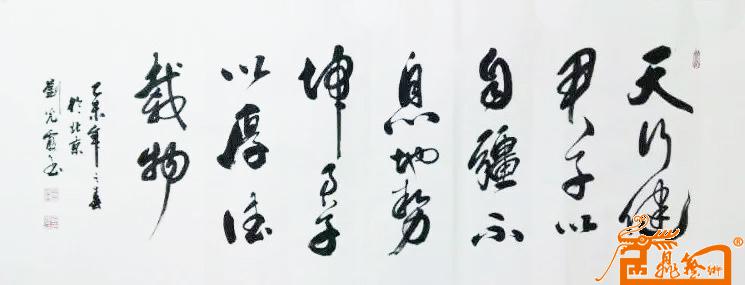 天行健
君子以
自疆不
息地势
坤君子
以厚德
載物
乙未年之春
於北京
劉光霞书